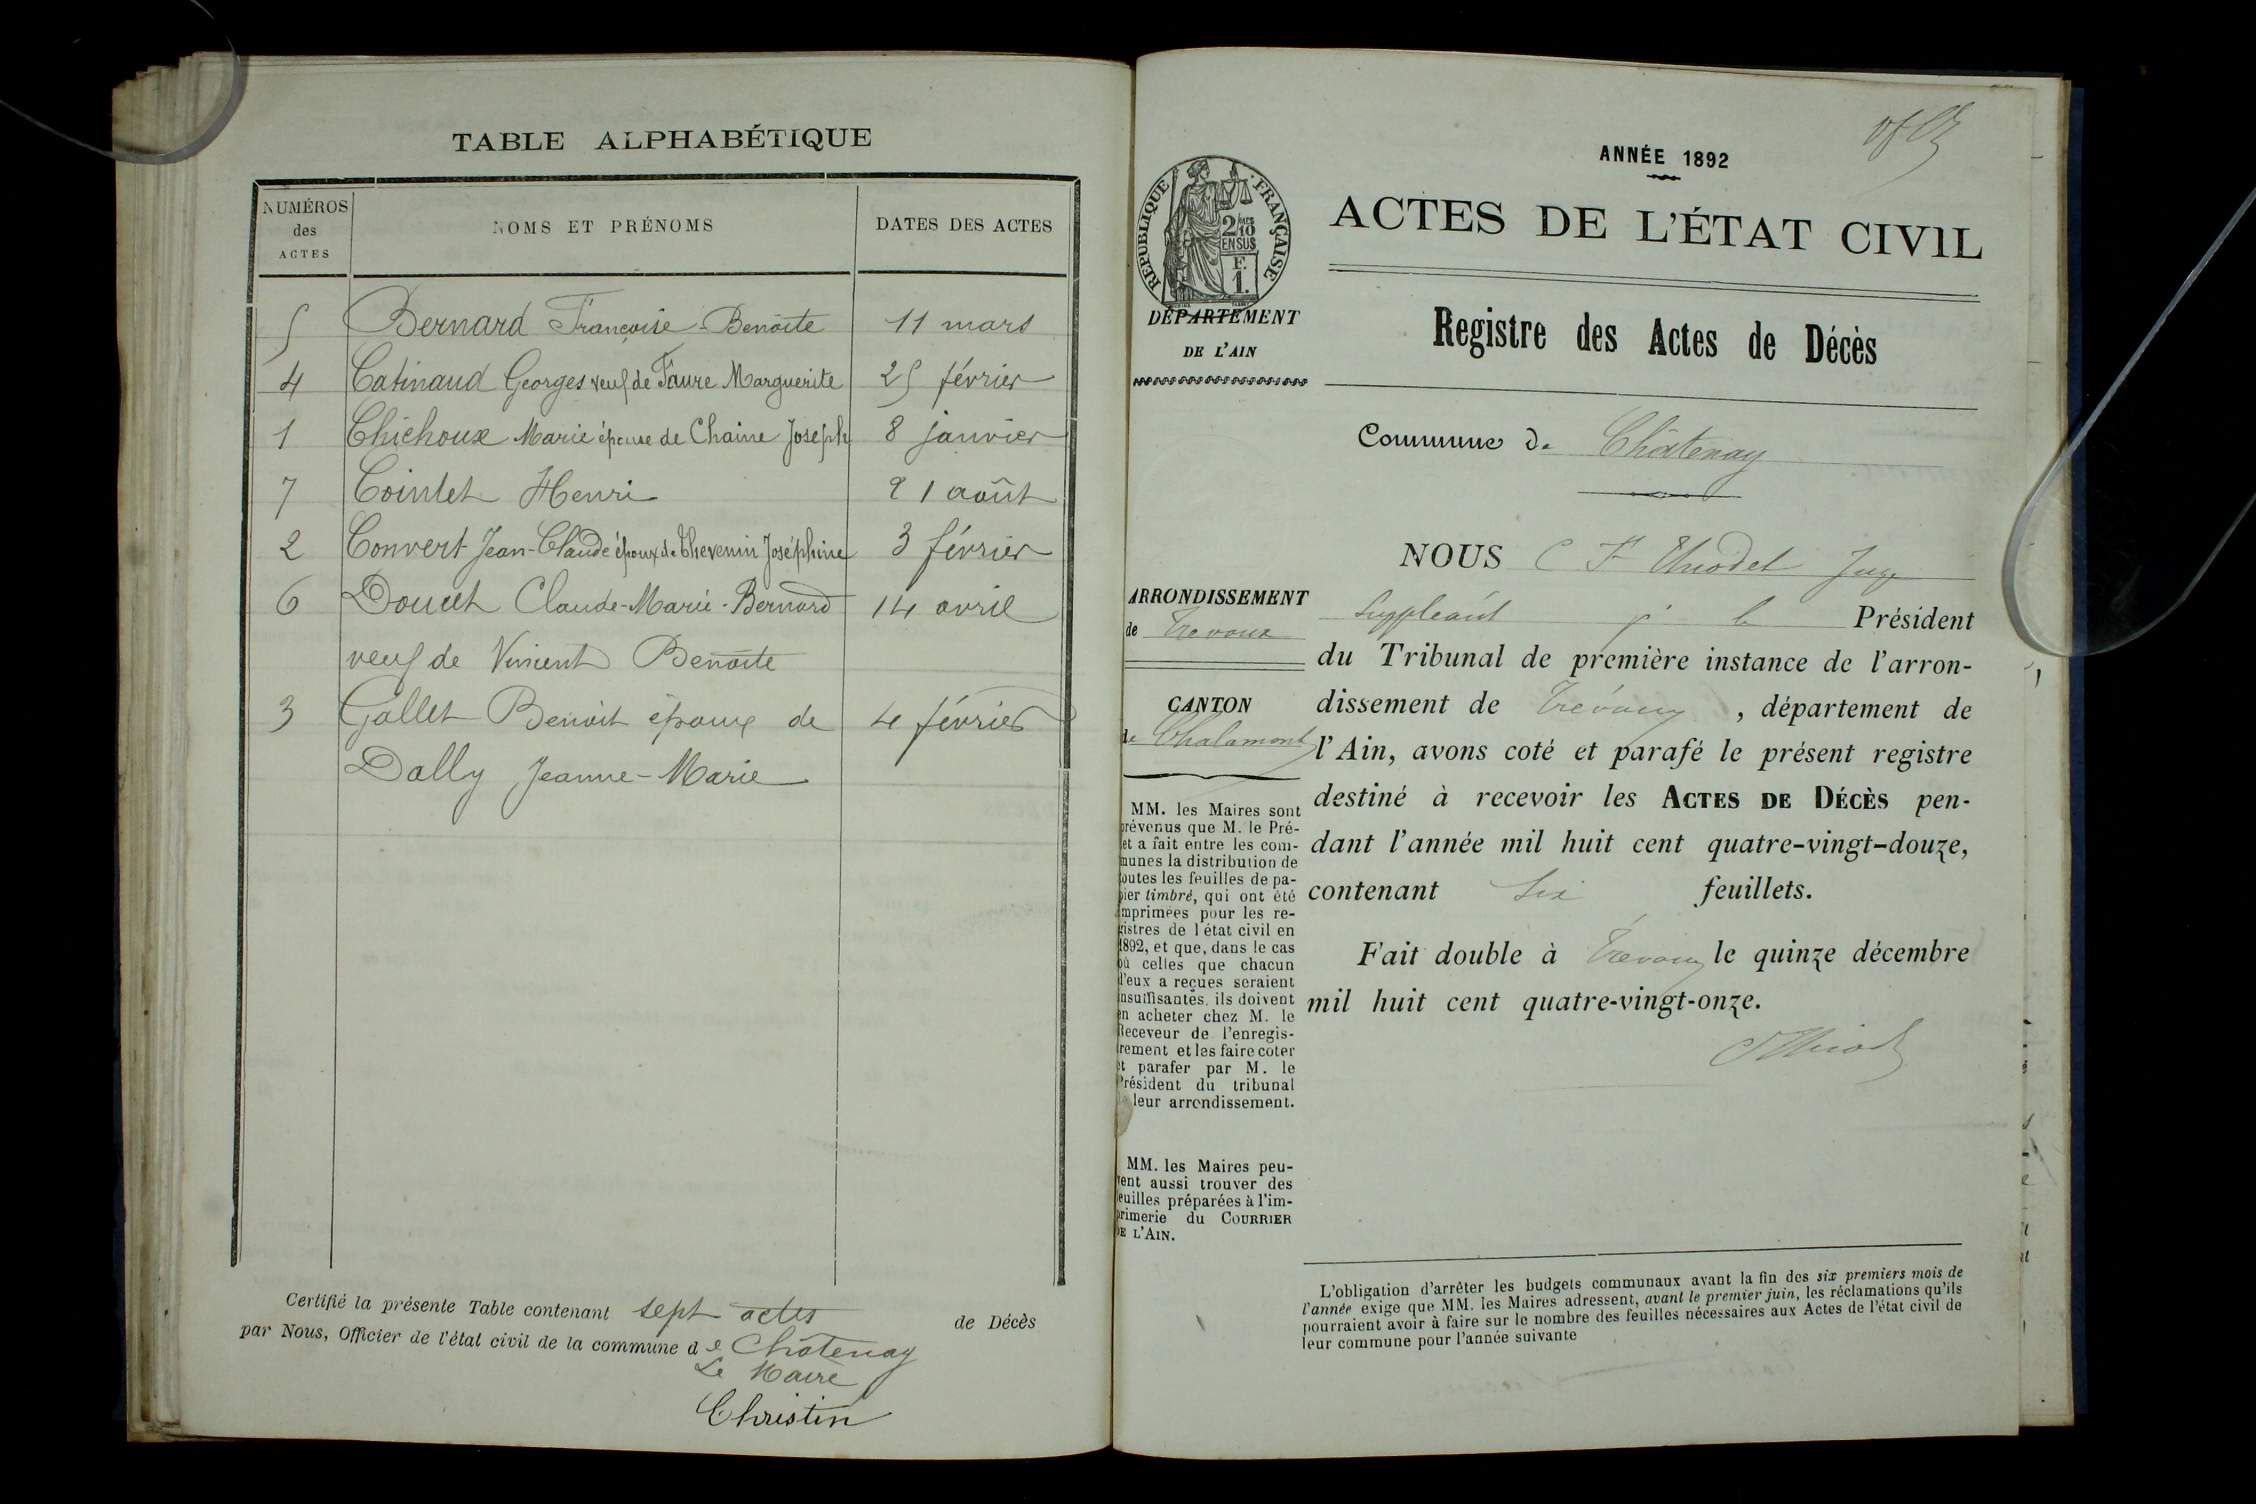 TABLE ALPHABÉTIQUE
NUMÉROS
des
ACTES
NOMS ET PRÉNOMS
DATES DES ACTES
5 Bernard Françoise-Benoîte 11 mars
4 Catinaud Georges veuf de Faure Marguerite 25 février
1 Chichoux Marie épouse de Chaine Joseph 8 janvier
7 Cointet Henri 21 août
2 Convert Jean-Claude époux de Thevenin Joséphine 3 février
6 Doucet Claude-Marie-Bernard 14 avril
veuf de Vincent Benoîte
3 Gallet Benoit époux de 4 février
Dally Jeanne-Marie
Certifié la présente Table contenant sept actes de Décès
par Nous, Officier de l'état civil de la commune de Châtenay
Le Maire
Christin
ANNÉE 1892
RÉPUBLIQUE FRANÇAISE
2/10
EN SUS
F.
1.
DÉPARTEMENT
DE L'AIN
ACTES DE L'ÉTAT CIVIL
Registre des Actes de Décès
Commune de Châtenay
ARRONDISSEMENT
de Trévoux
CANTON
de Chalamont
MM. les Maires sont
prévenus que M. le Pré-
et a fait entre les com-
munes la distribution de
toutes les feuilles de pa-
pier timbré, qui ont été
imprimées pour les re-
gistres de l'état civil en
1892, et que, dans le cas
où celles que chacun
d'eux a reçues seraient
insuffisantes, ils doivent
en acheter chez M. le
Receveur de l'enregis-
trement et les faire coter
et parafer par M. le
Président du tribunal
leur arrondissement.
MM. les Maires peu-
vent aussi trouver des
feuilles préparées à l'im-
primerie du COURRIER
DE L'AIN.
NOUS C Juge
Suppléant Président
du Tribunal de première instance de l'arron-
dissement de Trévoux, département de
l'Ain, avons coté et parafé le présent registre
destiné à recevoir les ACTES DE DÉCÈS pen-
dant l'année mil huit cent quatre-vingt-douze,
contenant six feuillets.
Fait double à Trévoux le quinze décembre
mil huit cent quatre-vingt-onze.
L'obligation d'arrêter les budgets communaux avant la fin des six premiers mois de
l'année exige que MM. les Maires adressent, avant le premier juin, les réclamations qu'ils
pourraient avoir à faire sur le nombre des feuilles nécessaires aux Actes de l'état civil de
leur commune pour l'année suivante